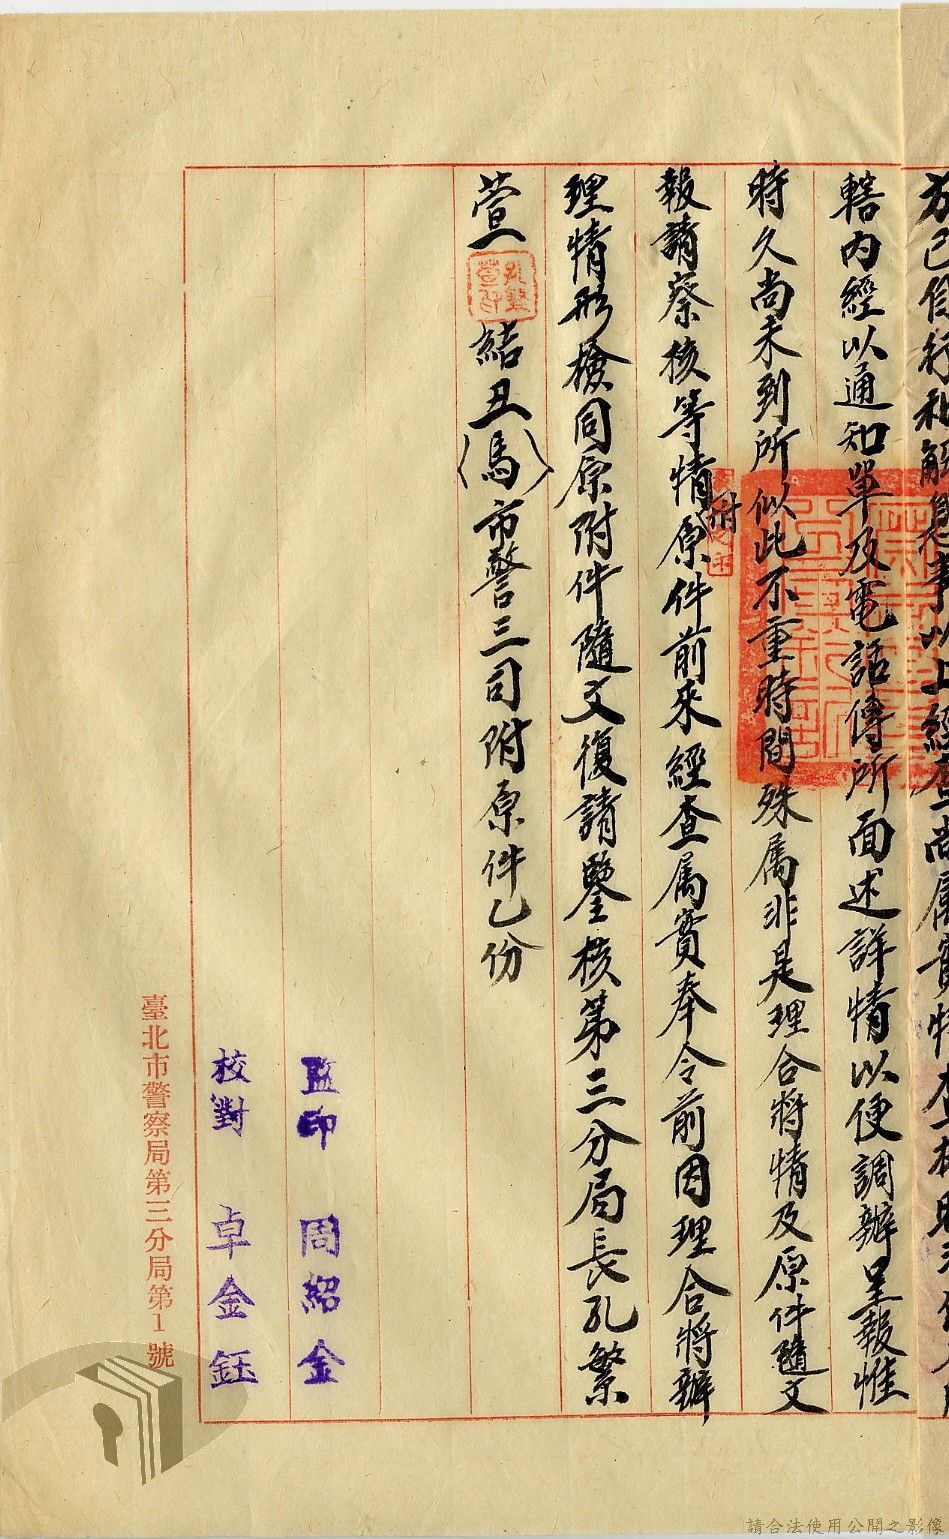 轄內經以通知單及電話傳所面述詳情以便調辦呈報惟
時久尚未到所似此不重時間殊属非是理合將情及原件隨文
報請察核等情附原件前來經查属實奉令前因理合將辦
理情形檢同原附件隨文復請鑒核第三分局長孔繁
萱 結丑(馬)市警三司附原件乙份
監印 周紹金
校對 卓金鈺
臺北市警察局第三分局第1號
請合法使用公開之影像